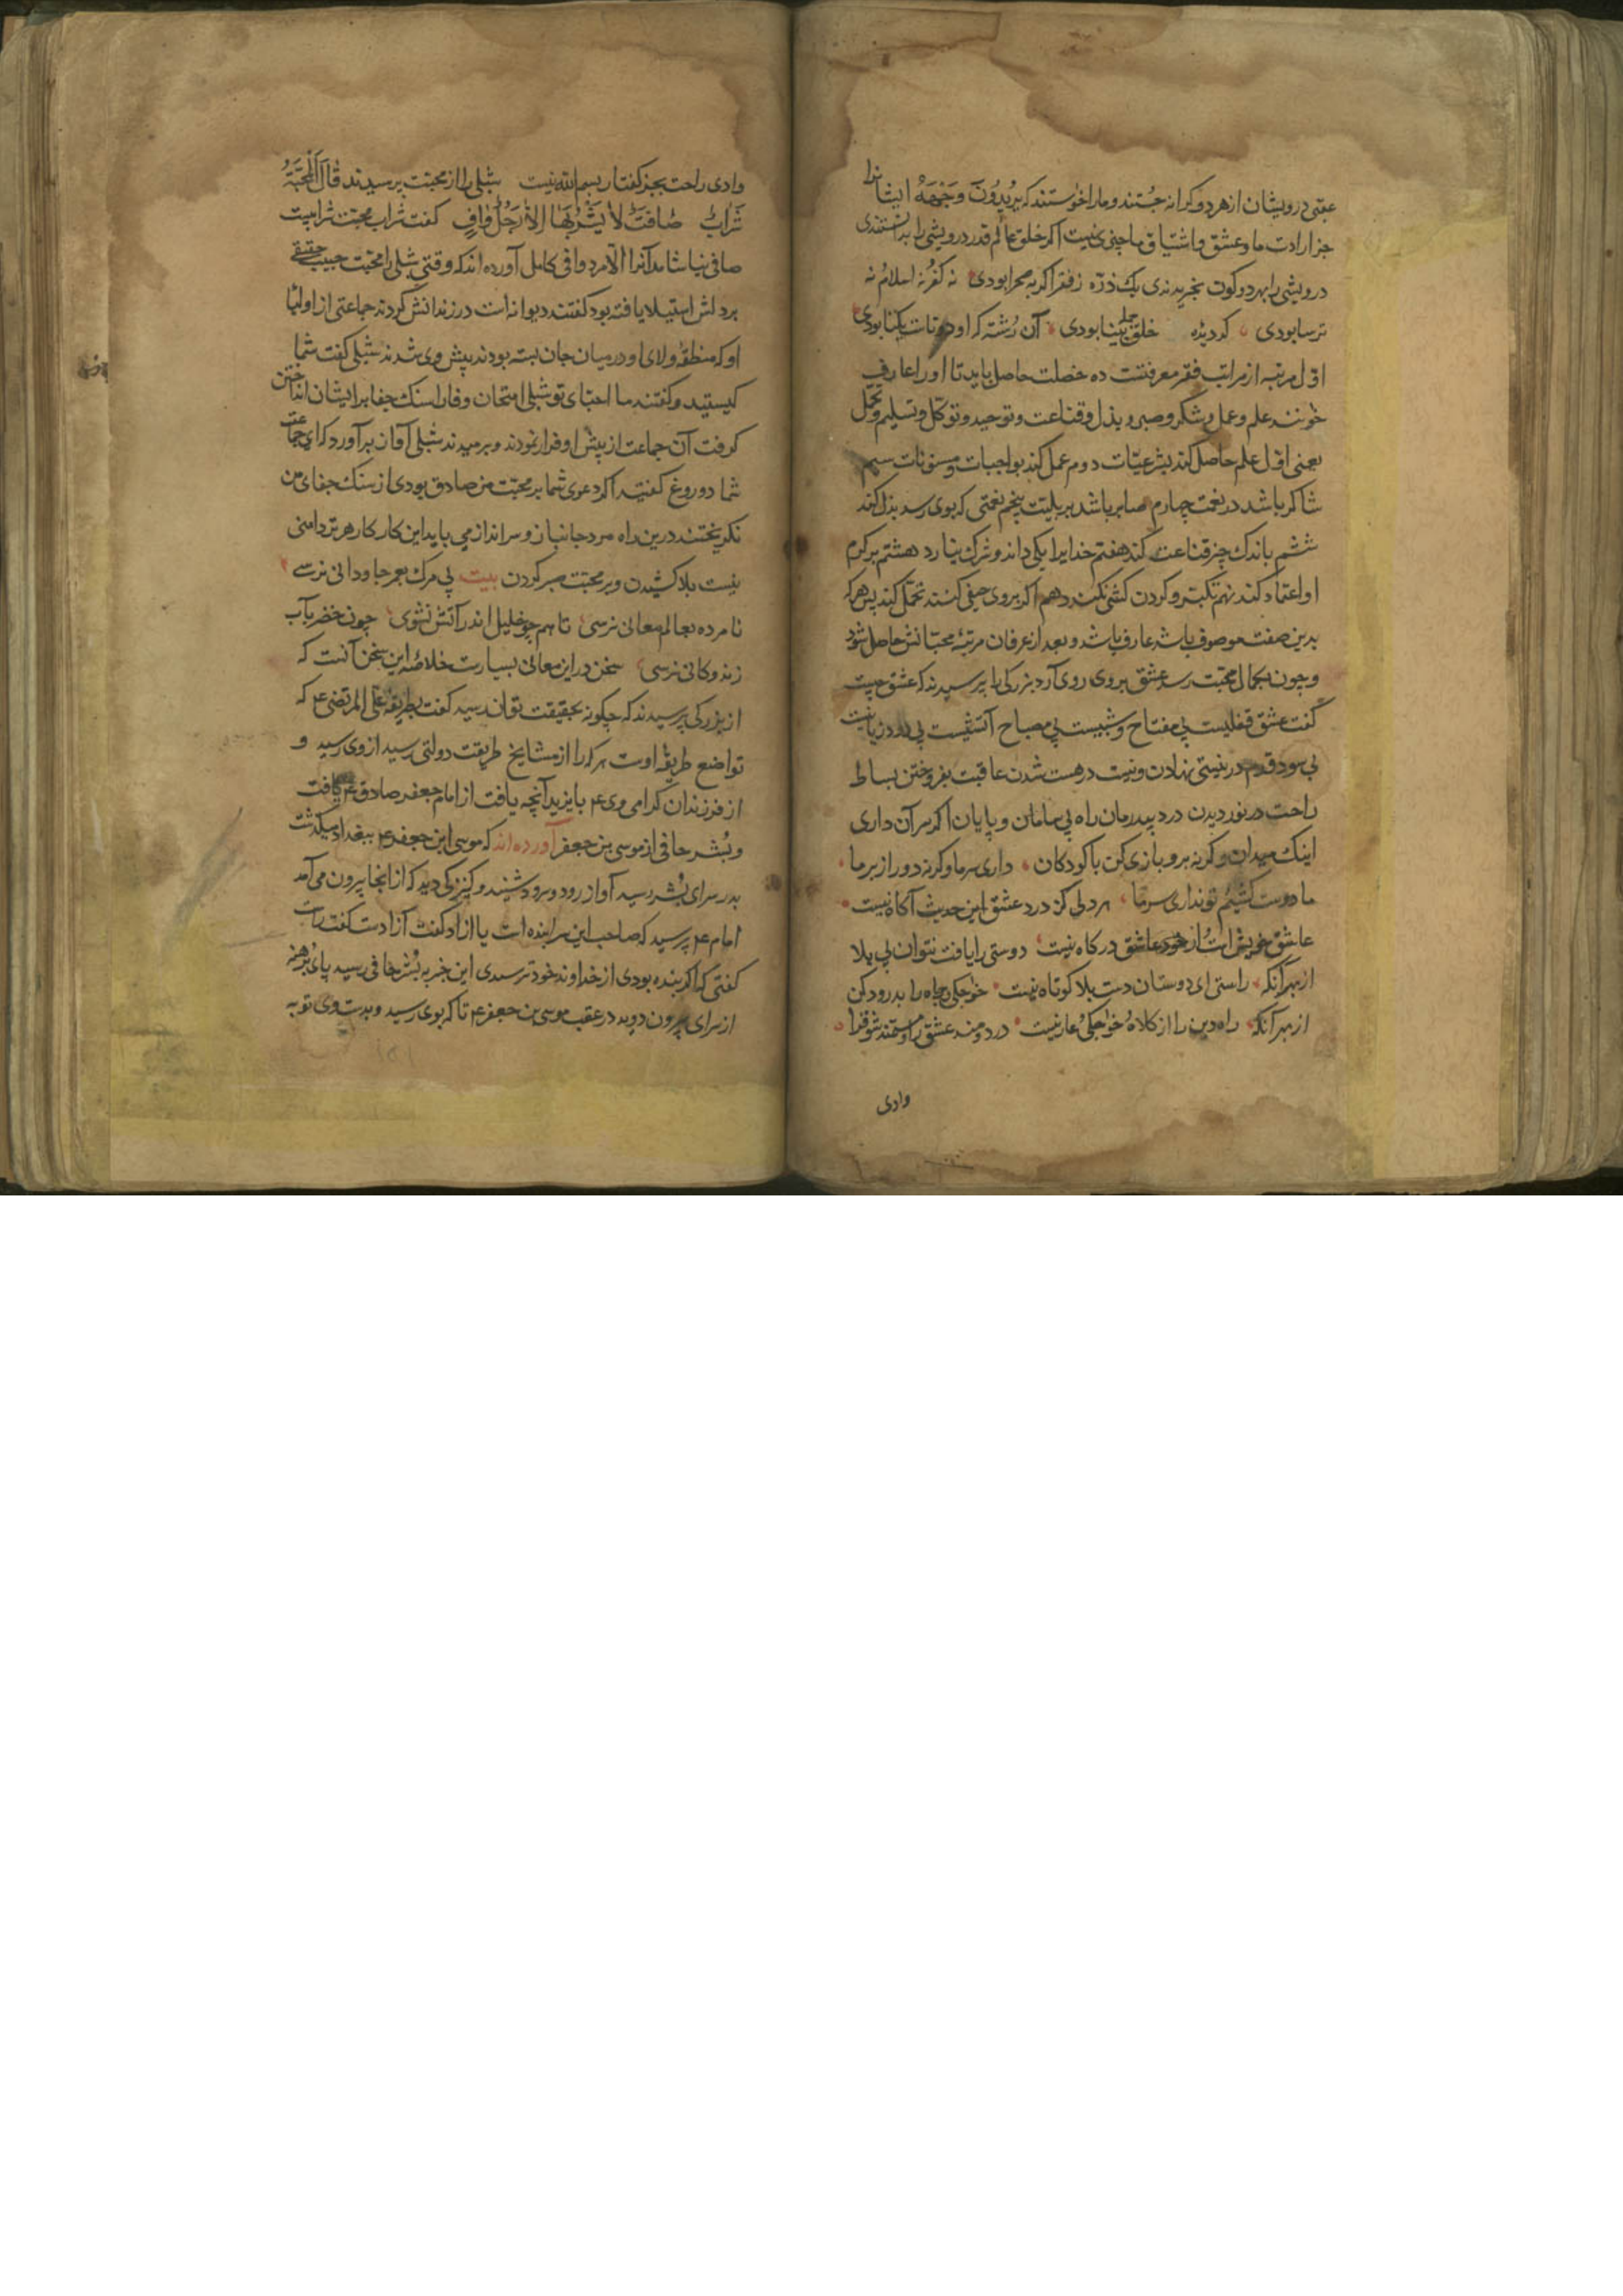 عقبی درویشان از هر دو کرانه جستند و ما را خواستند که یُرِیدُونَ وَجْهَهُ ایشانرا
جز ارادت ما و عشق و اشتیاق ما چیزی نیست اکر خلق عالم قدر درویشی را بدانستندی
درویشی را بهر دو کون بخریدندی یک ذره ز فقر اکر به صحرا بودی نه کفر نه اسلام نه
ترسا بودی کر دیده خلق جمله بینا بودی آن رُشته که او دوتاست یکتا بودی
اوّل مرتبه از مراتب فقر معرفتست ده خصلت حاصل باید تا او را عارف
خوانند علم و عمل و شکر و صبر و بذل و قناعت و توحید و توکّل و تسلیم و تحمّل
یعنی اوّل علم حاصل کند بشرعیّات دوم عمل کند بواجبات و مسنونات سیم
شاکر باشد در نعمت چهارم صابر باشد بر بلیّت پنجم نعمتی که بوی رسد بذل کند
ششم باندک چیز قناعت کند هفتم خدایرا یکی داند و شرک نیارد هشتم بر کرم
او اعتماد کند نهم تکبّر و کردن کشی نکند دهم اکر بر وی حیفی کنند تحمّل کند پس هر که
بدین صفت موصوف باشد عارف باشد و بعد از عرفان مرتبۀ محبّتانش حاصل شود
و چون بکمال محبّت رسد عشق بر وی روی آرد بزرکی را پرسیدند که عشق چیست
کفت عشق قفلیست بی مفتاح و شبیست بی مصباح آتشیست بی دود زیانیست
بی سود قدم در نیستی نهادن و نیست در هست شدن عاقبت بفروختن بساط
راحت در نوردیدن درد بیدرمان راه بی سامان و پایان اکر سر آن داری
اینک میدان و کر نه برو بازی کن با کودکان داری سر ما و کرنه دور از بر ما
ما دوست کشیم تو نداری سر ما هر دلی کز درد عشق این حدیث آکاه نیست
عاشق خویش است از خود عاشق درکاه نیست دوستی را یافت نتوان بی بلا
از بهر آنکه راستی ای دوستان دست بلا کوتاه نیست خواجکی و جاه را بدرود کن
از بهر آنکه راه دین را از کلاه خواجکی عار نیست دردمند عشق را مستمند شو فترا
وادی
وادی راحت بجز کفتار بسم الله نیست شبلی را از محبّت پرسیدند قَالَ اَلْمَحَبَّةُ
شَرَابٌ صَافٍ لَا یَشْرَبُهَا اِلَّا رَجُلٌ وَافٍ کفت شراب محبّت شرابیست
صافی نیاشامد آنرا الّا مرد وافی کامل آورده اند که وقتی شبلی را محبّت حبیب حقیقی
بر دلش استیلا یافته بود کفتند دیوانه است در زندانش کردند جماعتی از اولیا
او که منطقۀ ولای او در میان جان بسته بودند پیش وی شدند شبلی کفت شما
کیستید و کفتند ما احبّای تو شبلی امتحان وفا را سنک جفا بر ایشان انداختن
کرفت آن جماعت از پیش او فرار نمودند و برمیدند شبلی آواز برآورد که ای جماعت
شما دروغ کفتید اکر دعوی شما بر محبّت من صادق بودی از سنک جفای من
نکریختند درین راه مرد جانباز و سرانداز می باید این کار کار هر تر دامنی
نیست بلا کشیدن و بر محبّت صبر کردن بیت بی مرک بعمر جاودانی نرسی
نامرده بعالم معانی نرسی تا همچو خلیل اندر آتش نشوی چون خضر بآب
زندوکانی نرسی سخن در این معانی بسیارست خلاصۀ این سخن آنست که
از بزرکی پرسیدند که چکونه بحقیقت توان رسید کفت بطریقۀ علی المرتضی ع که
تواضع طریقۀ اوست هر که را از مشایخ طریقت دولتی رسید از وی رسید و
از فرزندان کرامی وی ع بایزید آنچه یافت از امام جعفر صادق ع یافت
و بُشر حافی از موسی بن جعفر آورده اند که موسی ابن جعفر ع ببغداد میکذشت
بدر سرای بُشر رسید آواز رود و سرود شنید و کنیزکی دید که از آنجا بیرون می آمد
امام ع پرسید که صاحب این سرا بنده است یا آزاد کفت آزادست کفت راست
کفتی که اکر بنده بودی از خداوند خود ترسیدی این خبر به بُشر حافی رسید پای برهنه
از سرای بیرون دوید در عقب موسی بن جعفر ع تا که بوی رسید و بدست وی توبه